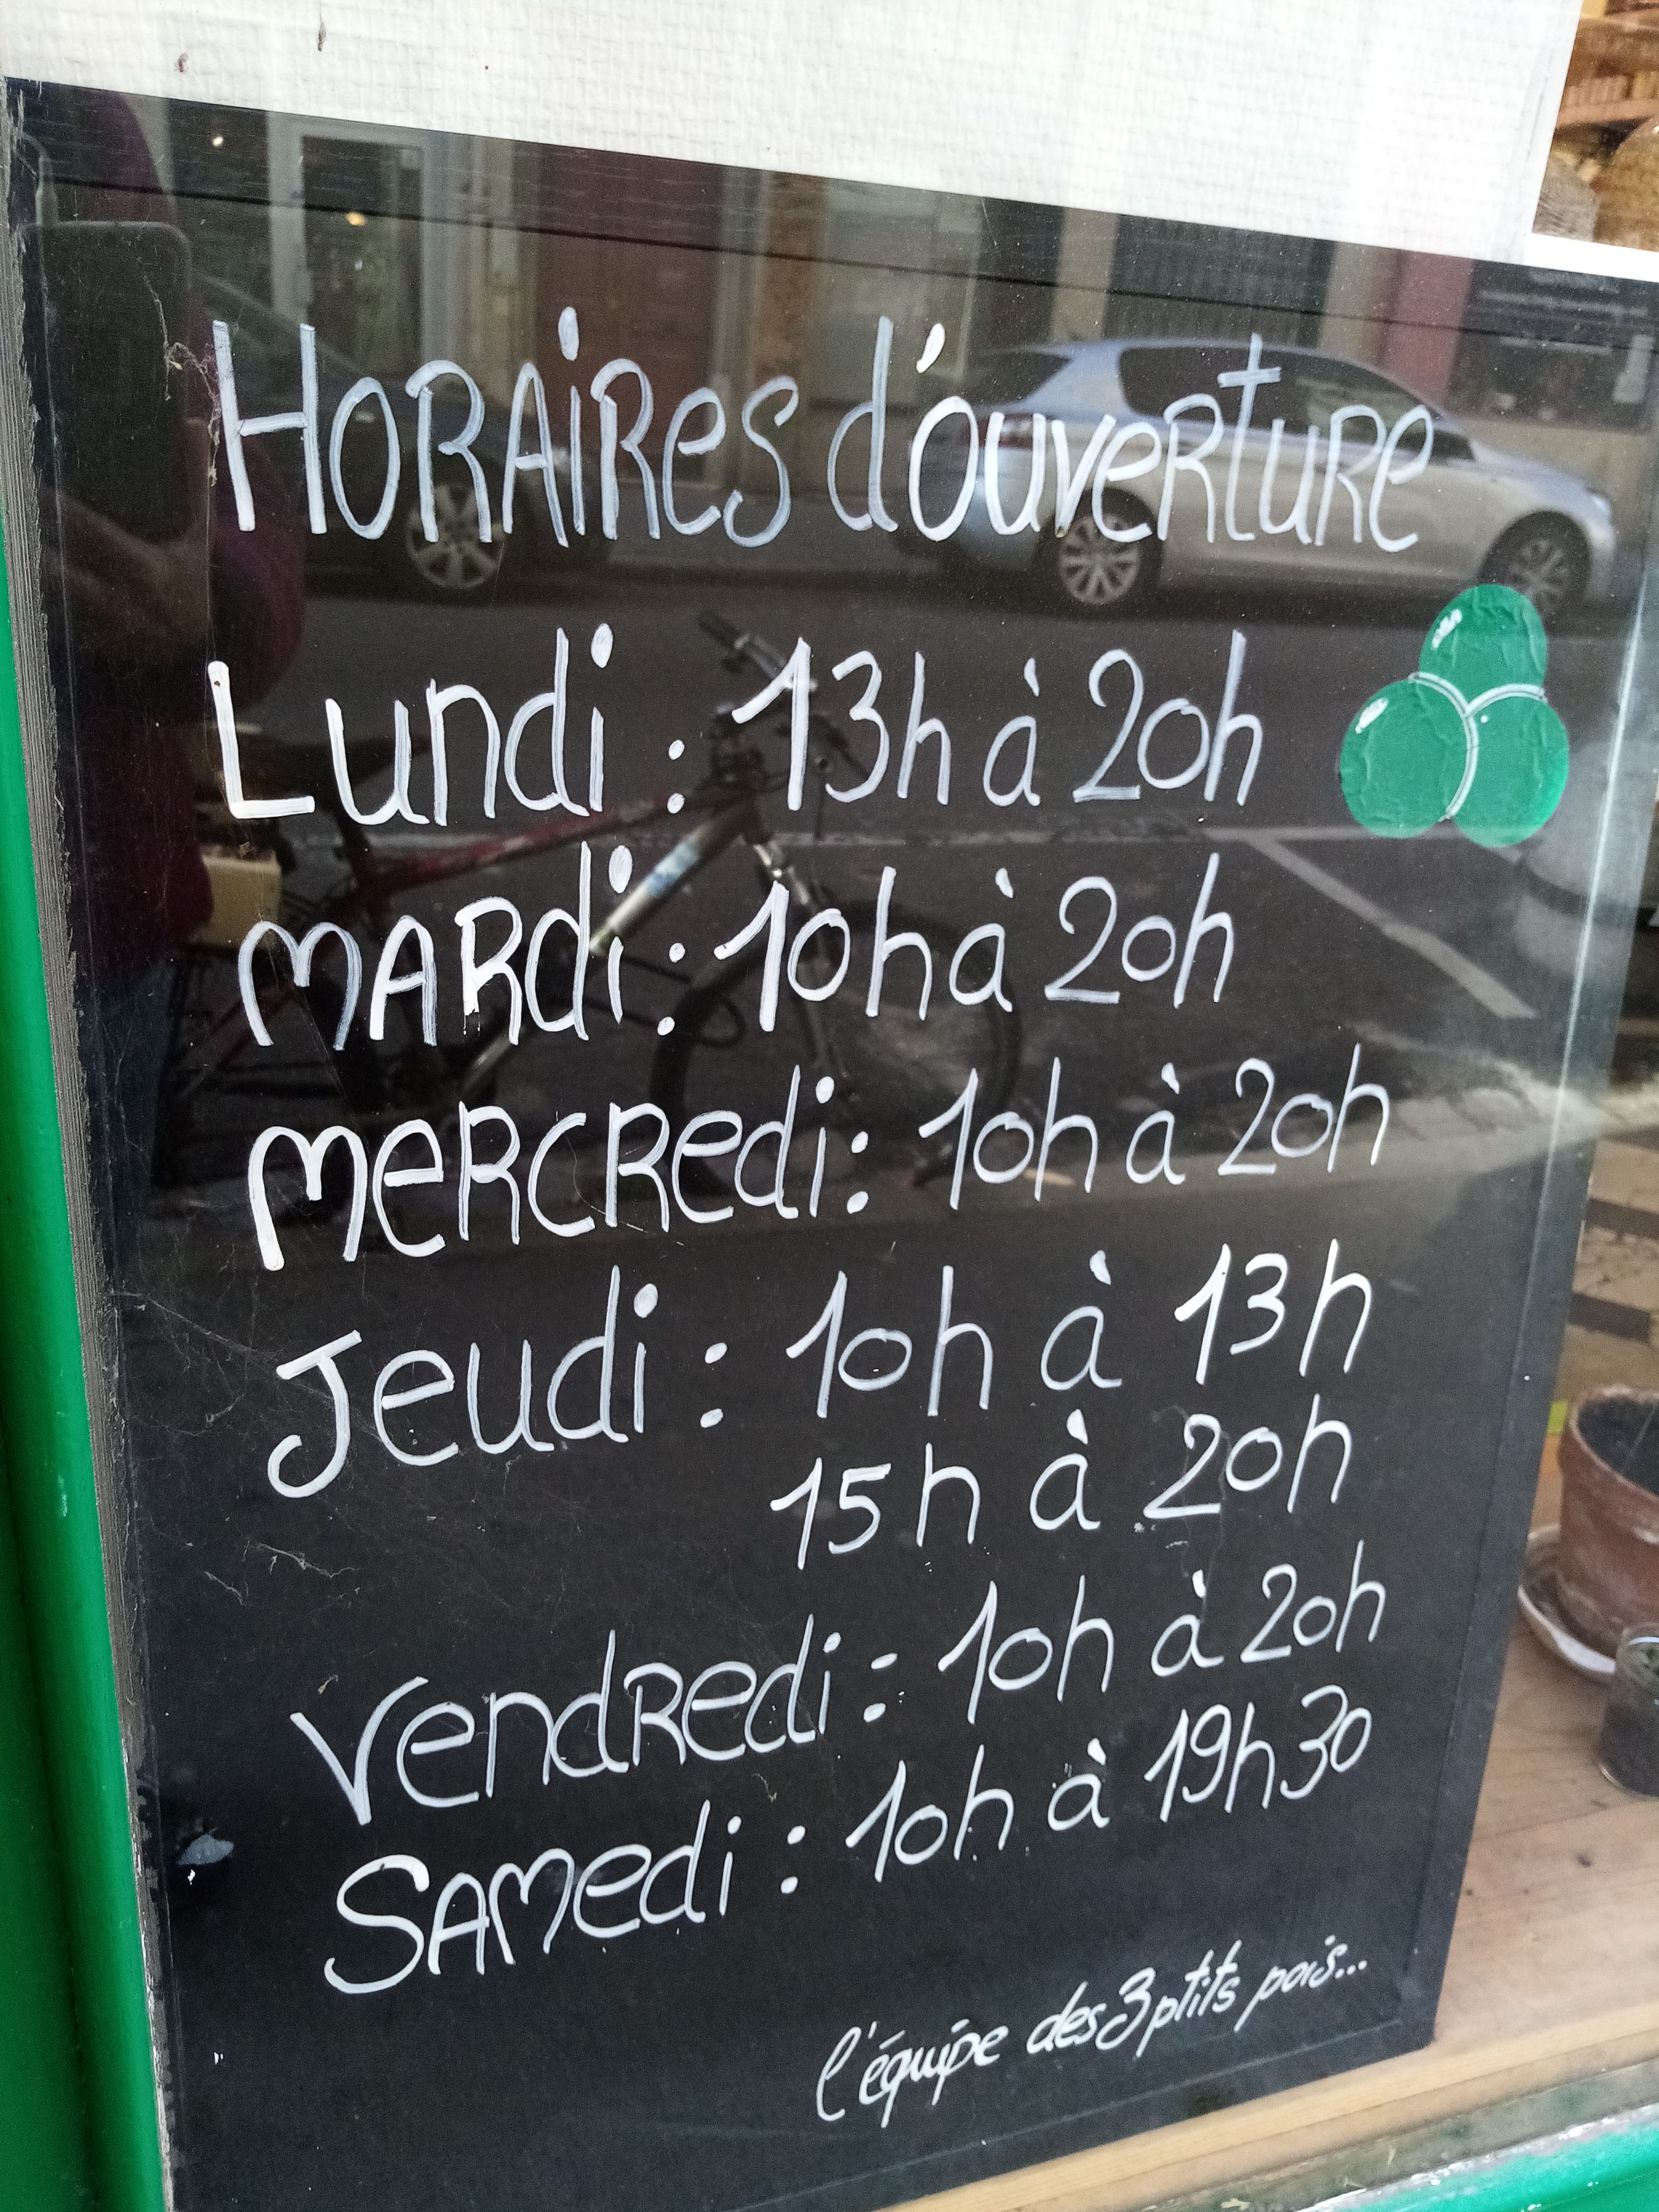 HORAiRes d'ouveRtuRe
Lundi : 13h à 20h
MARdi : 10h à 20h
MeRCRedi : 10h à 20h
Jeudi : 10h à 13h
15h à 20h
VendRedi : 10h à 20h
SAMedi : 10h à 19h30
l'équipe des 3 ptits pois...